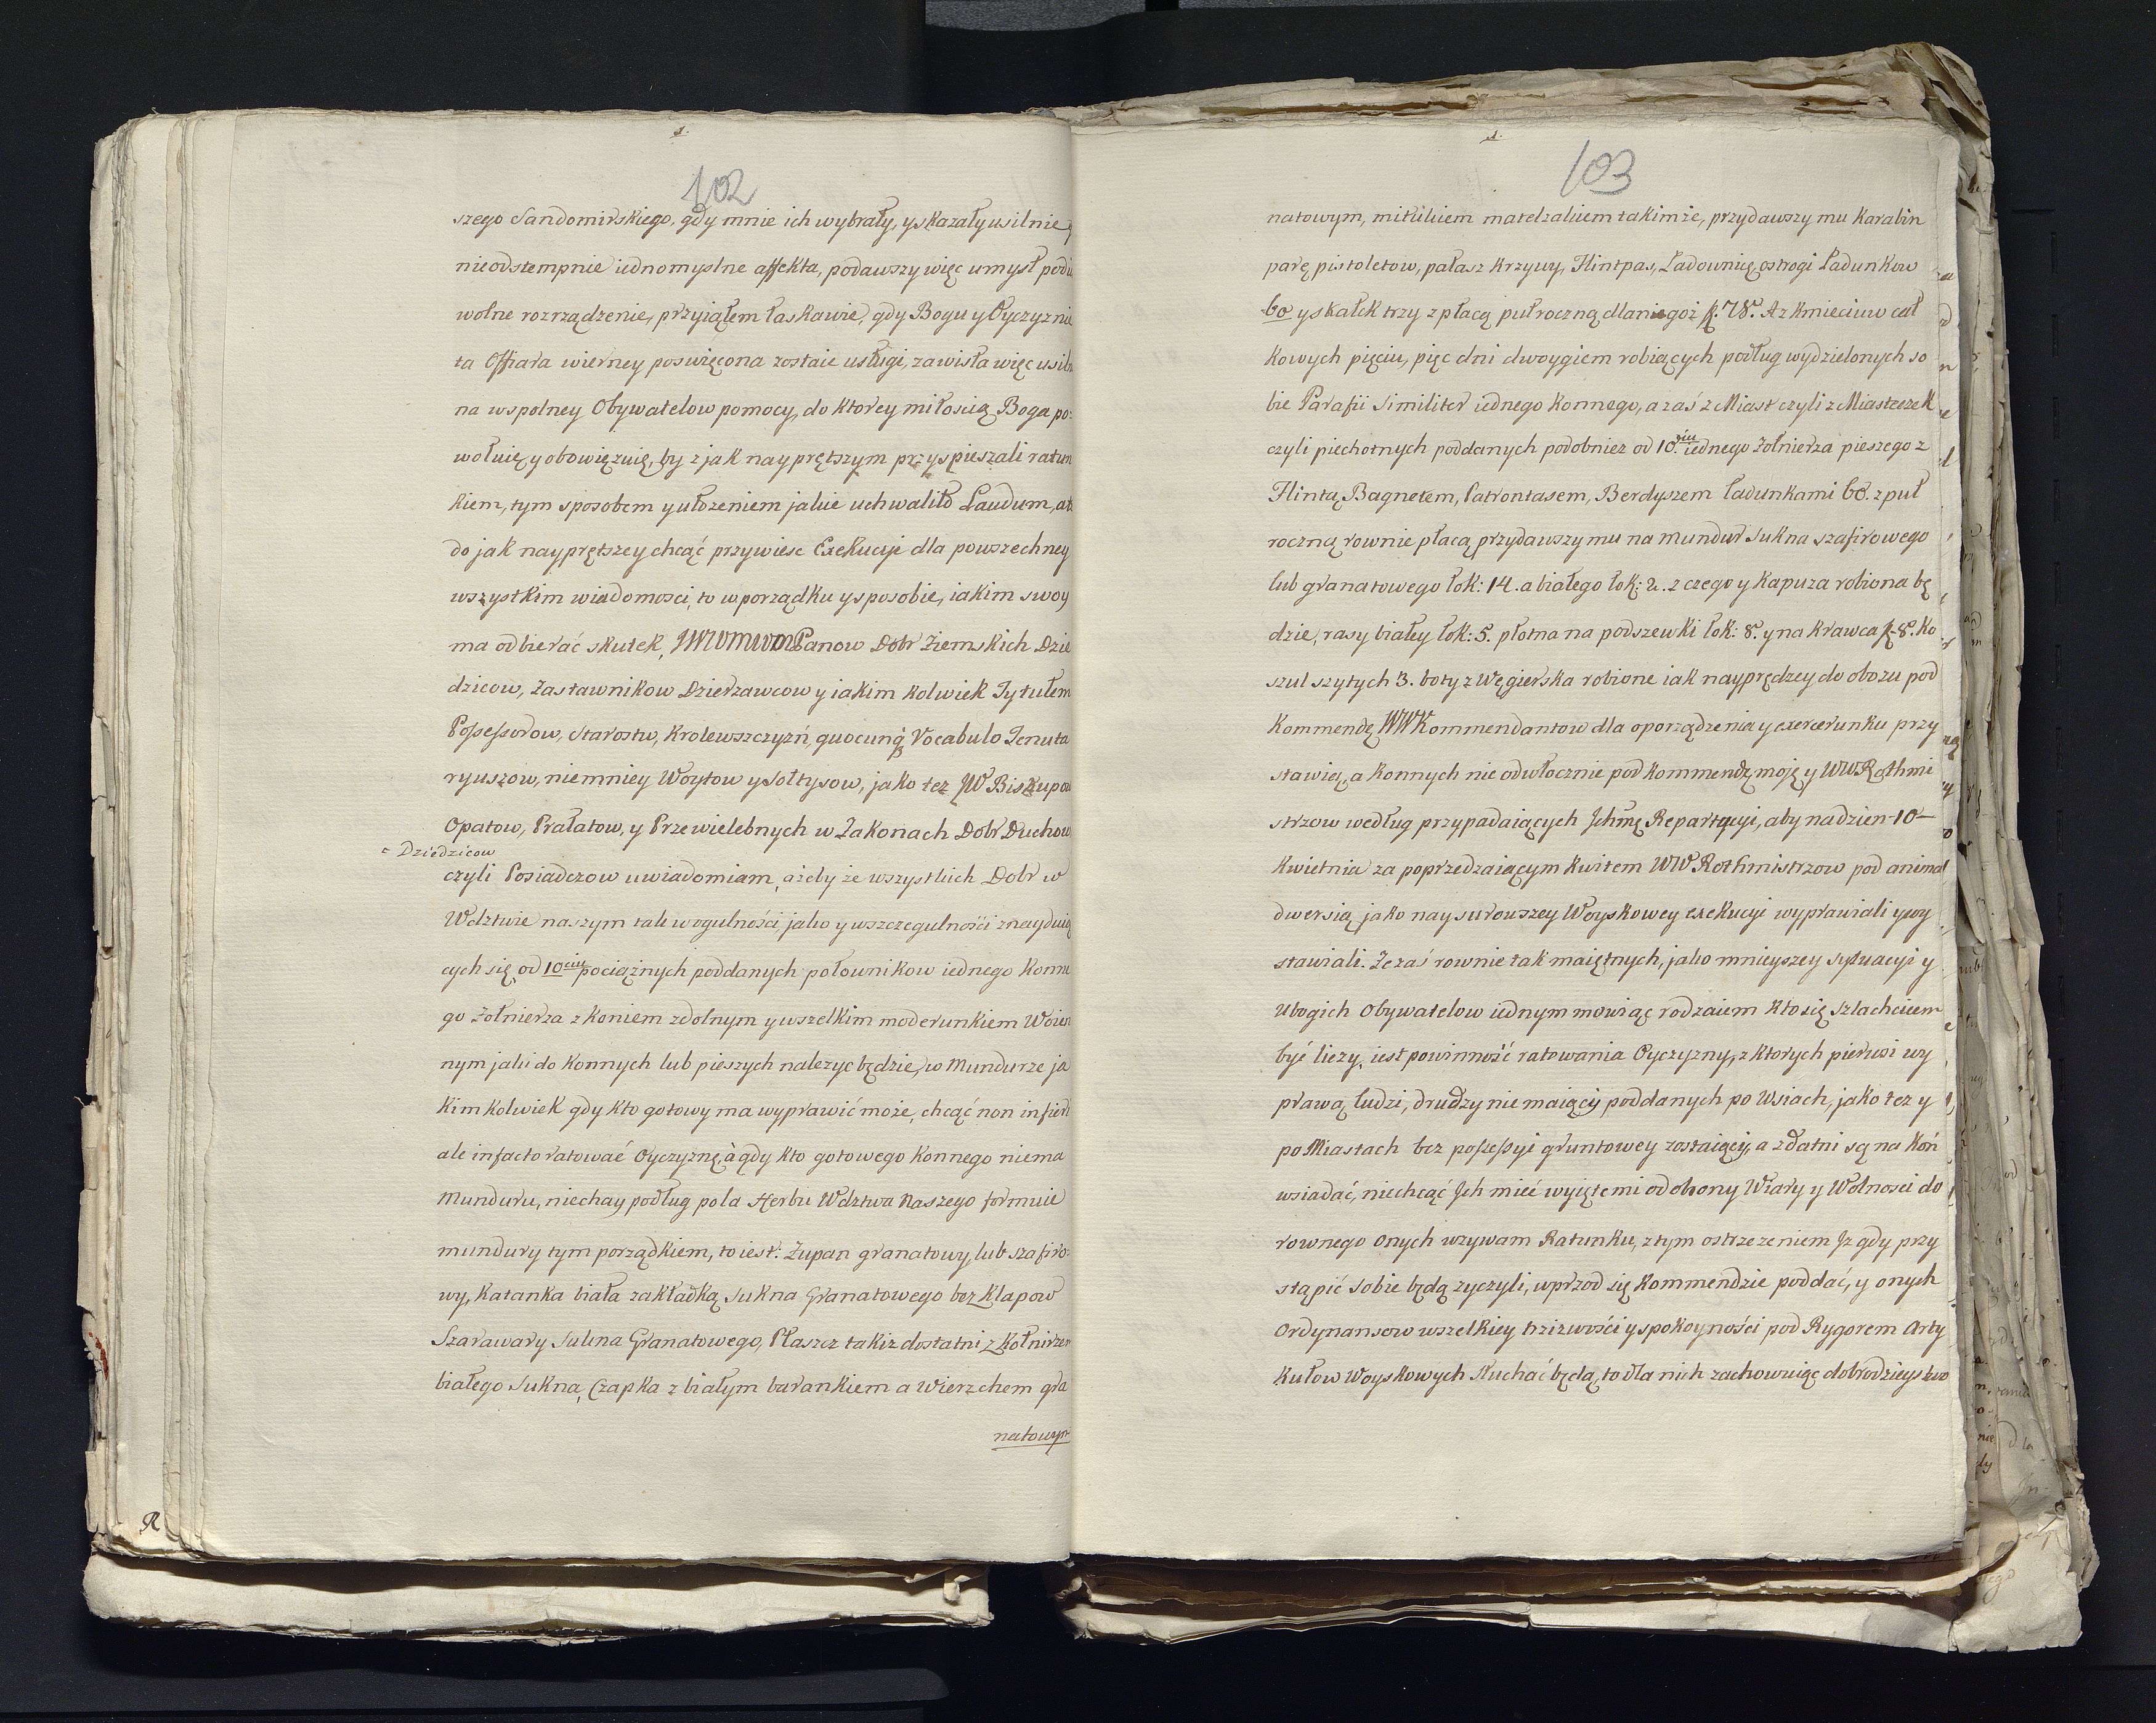 102
szego Sandomirskiego, gdy mnie ich wybrały, y skazały usilnie y
nieodstempnie iednomyslne affekta, podawszy więc umysł pod
wolne rozrządzenie, przyiąłem łaskawie, gdy Bogu y Oyczyznie
ta Offiara wierney poswięcona zostaie usługi, zawisła więc usil
na wspolney Obywatelow pomocy, do ktorey miłoscią Boga po:
wołuię y obowięzuię, by z jak nayprętszym przyspieszali ratun
kiem, tym sposobem y ułozeniem jakie uchwaliło Laudum, at
do jak nayprętszey chcąć przywiesc Exekucyi dla powszechney
wszystkim wiadomosci, to w porządku y sposobie, iakim swoy
ma odbierać skutek, Panow Dobr Ziemskich Dzie
dzicow, Zastawnikow Dzierzawcow y iakim kolwiek Tytułem
Possessorow, Starostw, Krolewszczyzń, quocunq Vocabulo Tenuta
ryuszow, niemniey Woytow y Sołtysow, jako tez JW Biskupow
Opatow, Prałatow, y Przewielebnych w Zakonach Dobr Duchow
= Dziedzicow
czyli Posiadczow uwiadomiam, ażeby że wszystkich Dobr w
Wdztwie naszym tak wogulności, jako y wszczegulności znayduią
cych się, od 10ciu pociąźnych poddanych połownikow iednego konne
go Zołnierza z koniem zdolnym y wszelkim moderunkiem Woien
nym jaki do konnych lub pieszych nalezyc będzie, w Mundurze ja
kim kolwiek gdy kto gotowy ma wyprawić może, chcąć non in fieri
ale in facto ratowaé Oyczyznę à gdy kto gotowego konnego niema
Munduru, niechay podług pola Herbu Wdztwa Naszego formuie
mundury tym porządkiem, to iest: Zupan granatowy, lub szafiro:
wy, Katanka biała zakładką Sukna Granatowego bez Klapow
Szarawary Sukna Granatowego, Płaszcz takiz dostatni z Kołnirzem
białego Sukna, Czapka z białym barankiem a Wierzchem gra
natowym
103
natowym, mitukiem materzakiem takimże, przydawszy mu Karabin
parę pistoletow, pałasz krzywy, Flintpas, Ładownię, ostrogi Ładunkow
60 y skałek trzy z płacą pułroczną dla niegoż f. 78. A z kmieciuw cał
kowych pięciu, pięc dni dwoygiem robiących podług wydzielonych so
bie Parafii similiter iednego konnego, a zaś z Miast czyli z Miasteczek
czyli piechotnych poddanych podobniez od 10ciu iednego Zołnierza pieszego z
Flintą, Bagnetem, Patrontasem, Berdyszem ładunkami 60. z puł
roczną rownie płacą przydawszy mu na mundur Sukna szafirowego
lub granatowego łok: 14. a białego łok: 2. z czego y kapuza robiona bę
dzie, rasy białey łok: 5. płotna na podszewki łok: 8. y na krawca f. 8. Ko
szul szytych 3. boty z Węgierska robione iak nayprędzey do obozu pod
Kommendę WW Kommendantow dla oporządzenia y exercerunku przy
stawią, a konnych nieodwłocznie pod kommendę moię y WW Rothmi
strzow według przypadaiących Ichmę Repartycyi, aby na dzien 10
Kwietnia za poprzedzaiącym kwitem WW Rothmistrzow pod animad
dwersią jako naysurowszey Woyskowey exekucyi wyprawiali y wy
stawiali. Ze zaś rownie tak maiętnych, jako mnieyszey sytuacyi y
Ubogich Obywatelow iednym mowiąc rodzaiem kto się Szlachcicem
być liczy, iest powinność ratowania Oyczyzny, z ktorych pierwsi wy
prawą ludzi, drudzy nie maiący poddanych po Wsiach, jako tez y
po Miastach bez possessyi gruntowey zostaiący, a zdatni są na Koń
wsiadać, niechcąć Ich mieć wyiętemi od obrony Wiary y Wolnosci do
rownego onych wzywam Ratunku, z tym ostrzezeniem Iz gdy przy
stąpić sobie będą zyczyli, wprzod się Kommendzie poddać, y onych
Ordynansow wszelkiey trzizwości y spokoyności pod Rygorem Arty
kułow Woyskowych słuchać będą, to dla nich zachowuiąc dobrodzieystwo
R